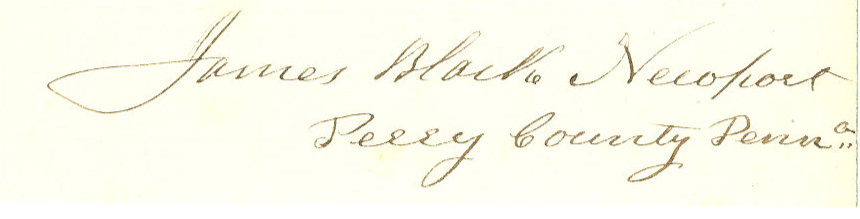 James Black Newport
Perry County Penn<sup>a</sup>..